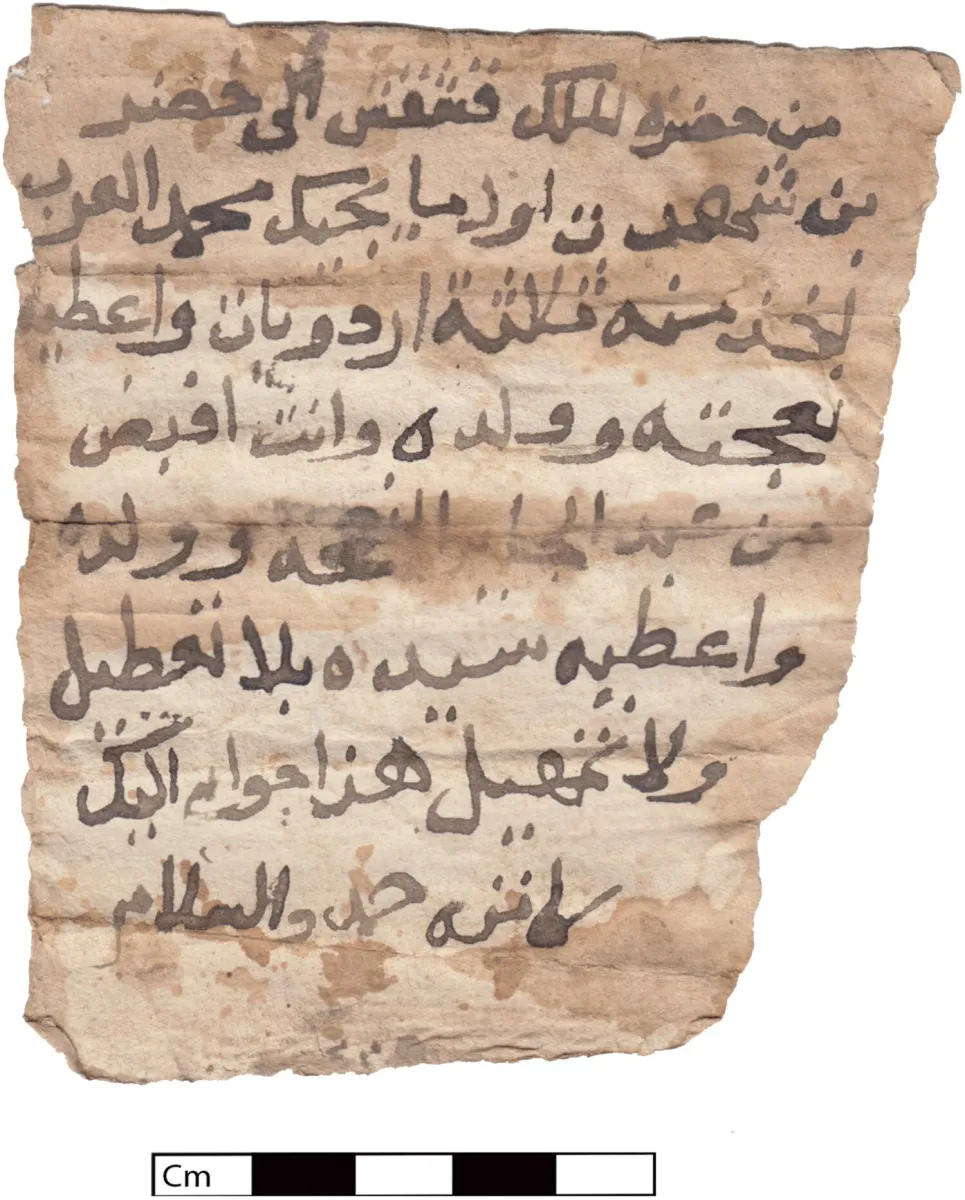 من حضرة الملك قشقش الى خضر
بن شهدت اول ما يجيك محمد العرب
لخذ منه ثلاثة اردويات واعطيه
نعجته وولده وانت اقبض
من عبد الجابر النعجه وولده
واعطيه سيده بلا تعطيل
ولا تمهيل هذا جوابي اليك
لا تزيه حد والسلام